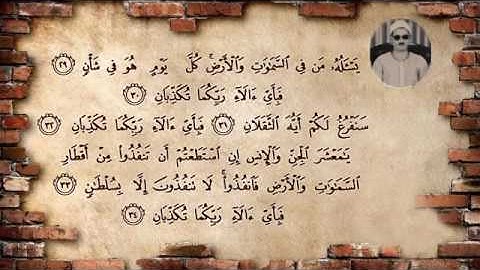 يَسْـَٔلُهُۥ مَن فِى ٱلسَّمَٰوَٰتِ وَٱلْأَرْضِ ۚ كُلَّ يَوْمٍ هُوَ فِى شَأْنٍ ٢٩
فَبِأَىِّ ءَالَآءِ رَبِّكُمَا تُكَذِّبَانِ ٣٠
سَنَفْرُغُ لَكُمْ أَيُّهَ ٱلثَّقَلَانِ ٣١ فَبِأَىِّ ءَالَآءِ رَبِّكُمَا تُكَذِّبَانِ ٣٢
يَٰمَعْشَرَ ٱلْجِنِّ وَٱلْإِنسِ إِنِ ٱسْتَطَعْتُمْ أَن تَنفُذُوا۟ مِنْ أَقْطَارِ
ٱلسَّمَٰوَٰتِ وَٱلْأَرْضِ فَٱنفُذُوا۟ ۚ لَا تَنفُذُونَ إِلَّا بِسُلْطَٰنٍ ٣٣
فَبِأَىِّ ءَالَآءِ رَبِّكُمَا تُكَذِّبَانِ ٣٤